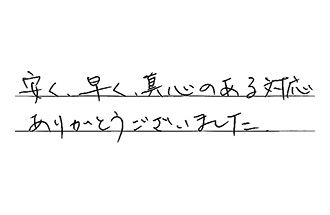 安く、早く、真心のある対応
ありがとうございました